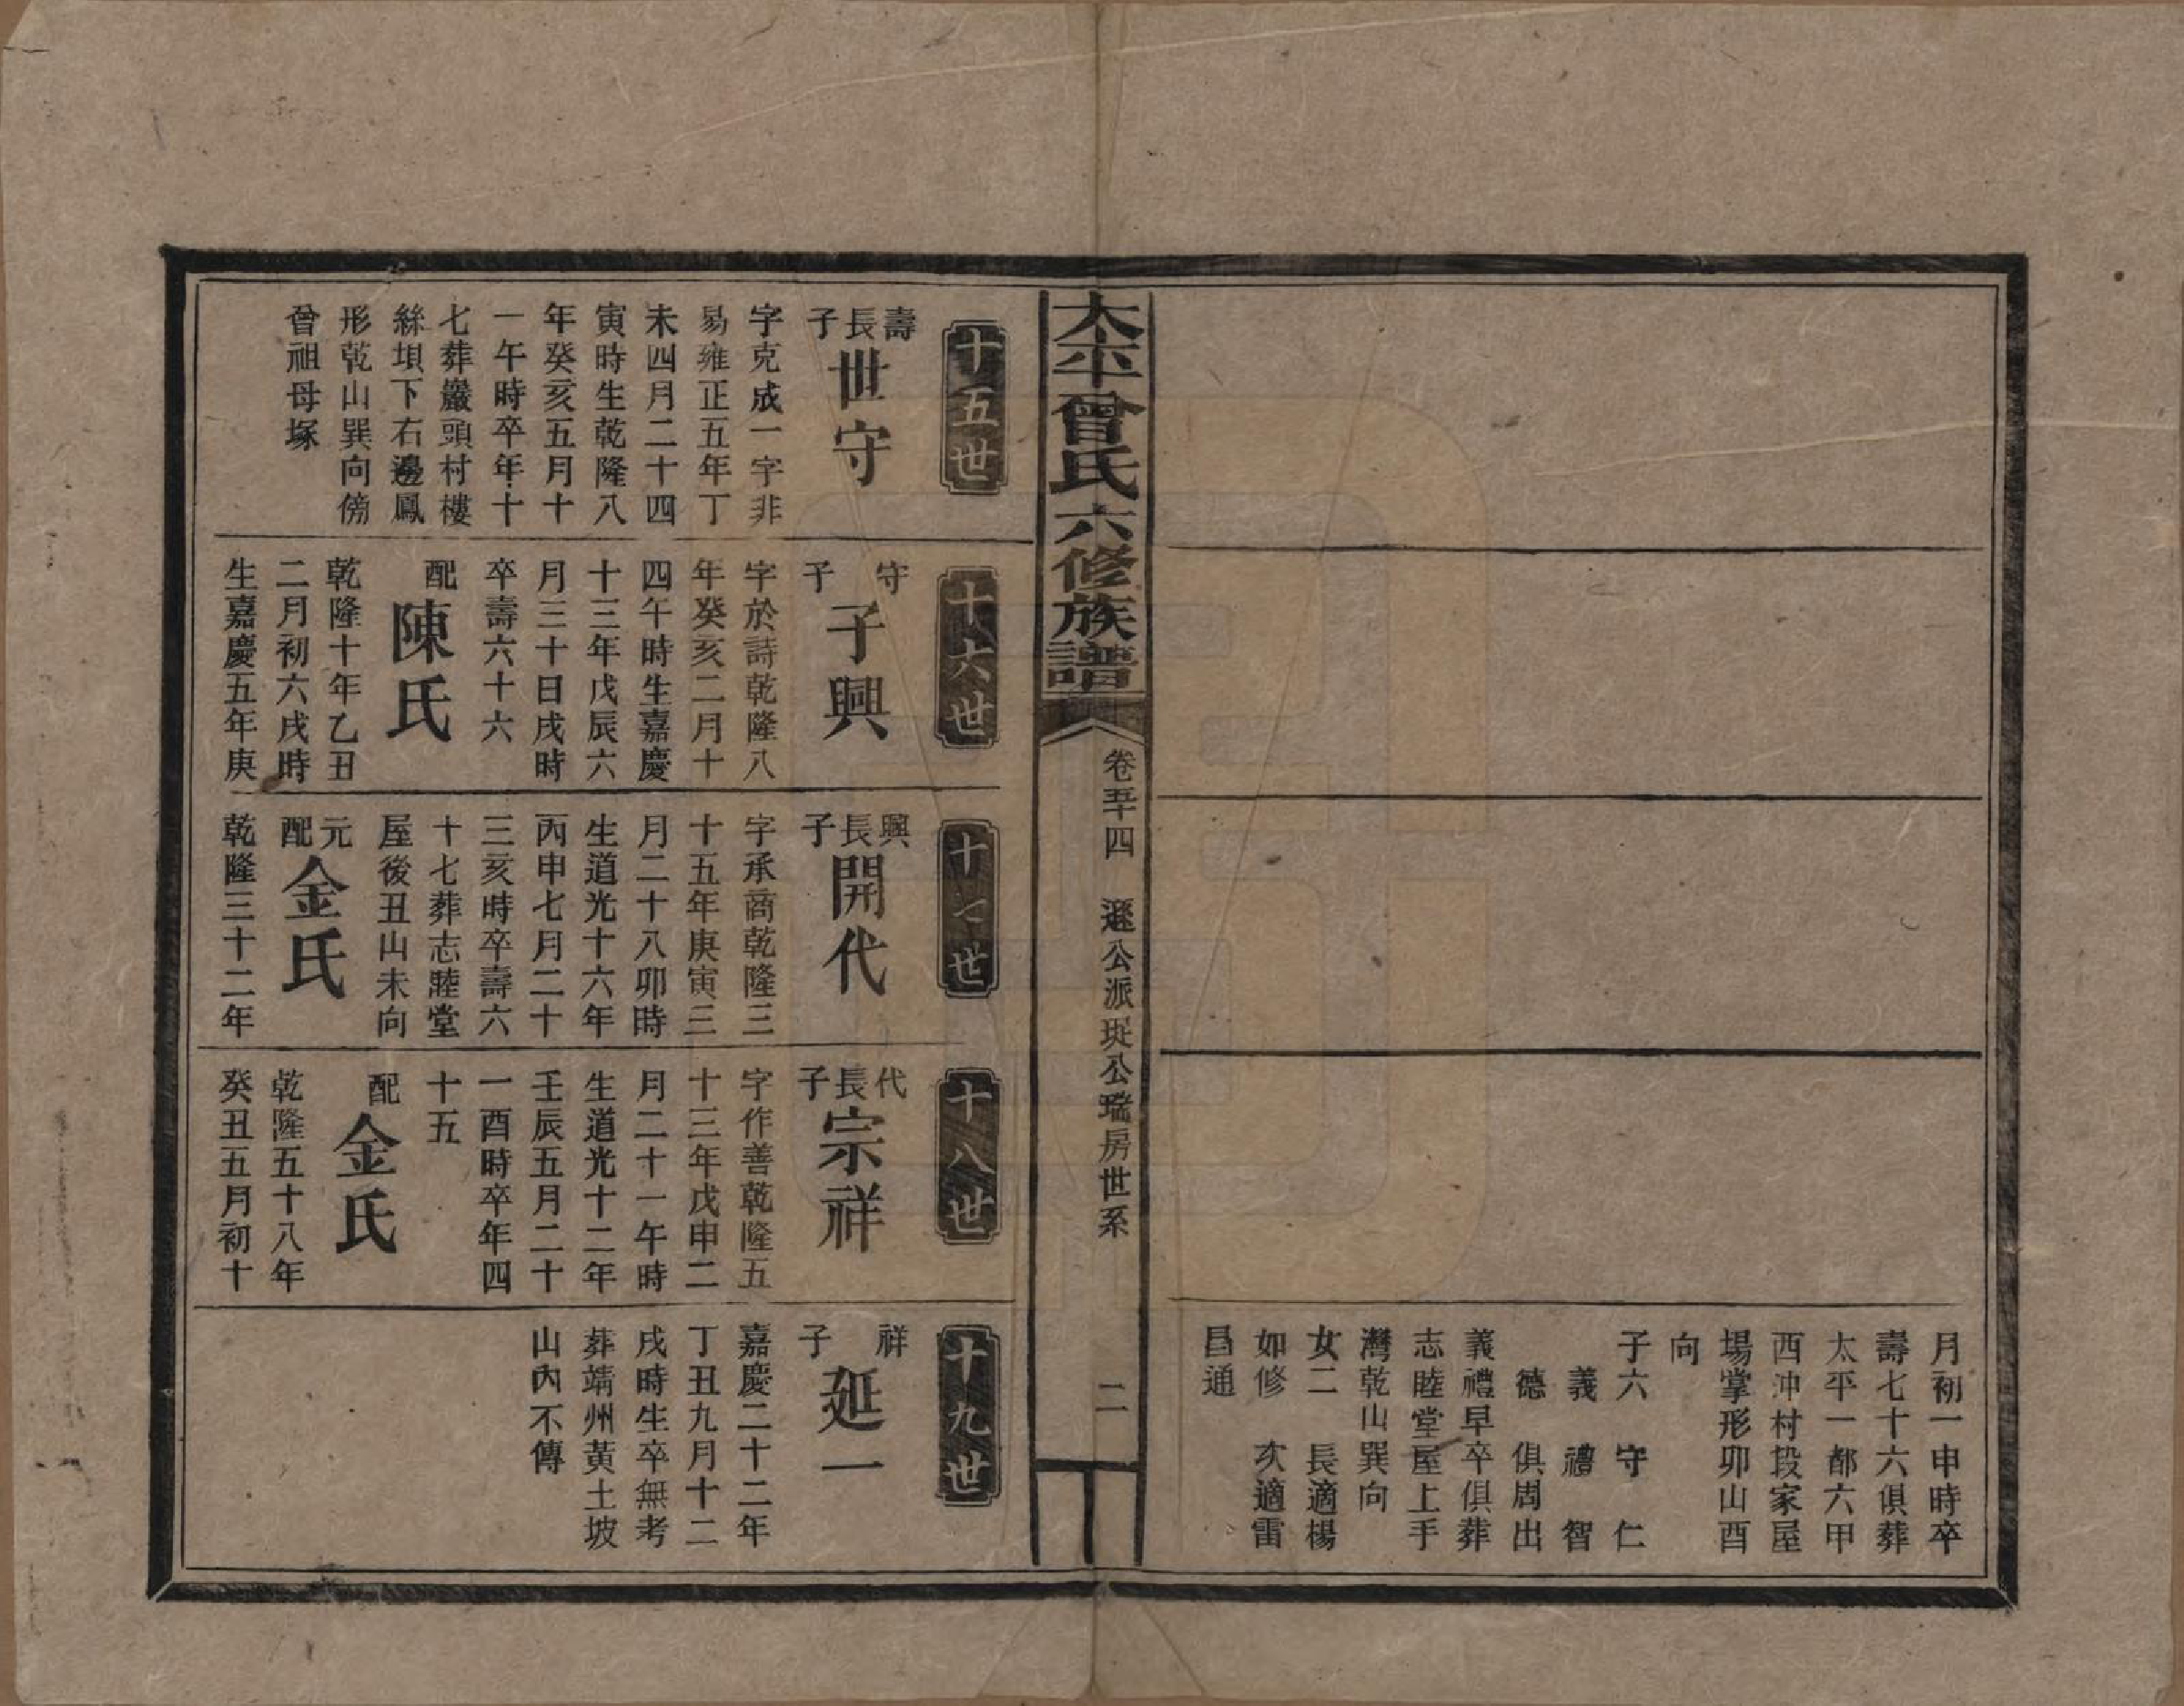 月初一申時卒
壽七十六俱葬
太平一都六甲
西沖村段家屋
場掌形卯山酉
向
子六　守　仁
義　禮　智
德　俱周出
義禮早卒俱葬
志睦堂屋上手
灣乾山巽向
女二　長適楊
如修　次適雷
昌通
太平曾氏六修族譜
卷五十四　遜公派珽公瑞房世系
二
十五世
壽長子
世守
字克成一字非
易雍正五年丁
未四月二十四
寅時生乾隆八
年癸亥五月十
一午時卒年十
七葬巖頭村樓
絲垻下右邊鳳
形乾山巽向傍
曾祖母塚
十六世
守子
子興
字於詩乾隆八
年癸亥二月十
四午時生嘉慶
十三年戊辰六
月三十日戌時
卒壽六十六
配
陳氏
乾隆十年乙丑
二月初六戌時
生嘉慶五年庚
十七世
興長子
開代
字承商乾隆三
十五年庚寅三
月二十八卯時
生道光十六年
丙申七月二十
三亥時卒壽六
十七葬志睦堂
屋後丑山未向
元配
金氏
乾隆三十二年
十八世
代長子
宗祥
字作善乾隆五
十三年戊申二
月二十一午時
生道光十二年
壬辰五月二十
一酉時卒年四
十五
配
金氏
乾隆五十八年
癸丑五月初十
十九世
祥子
延一
嘉慶二十二年
丁丑九月十二
戌時生卒無考
葬靖州黃土坡
山內不傳